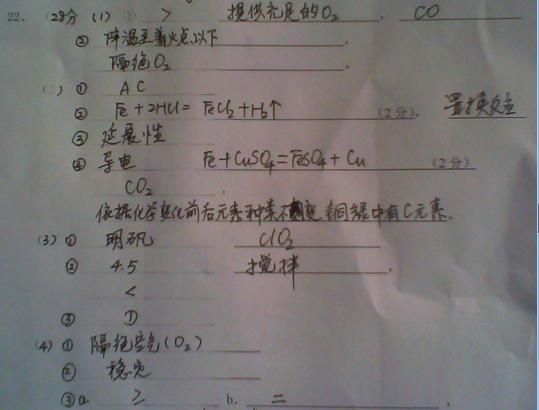 22、 (28分) (1) ① > 提供充足的O₂ . CO
② 降温至着火点以下 .
隔绝O₂ .
(2) ① A C
② Fe + 2HCl = FeCl₂ + H₂↑ (2分) 置换反应
③ 延展性
④ 导电 Fe + CuSO₄ = FeSO₄ + Cu (2分)
CO₂ .
依据化学变化前后元素种类不变,铜绿中有C元素.
(3) ① 明矾 ClO₂
② 4.5 搅拌 .
<
③ ①
(4) ① 隔绝空气(O₂)
② 稳定
③ a ≥ b. 二 .